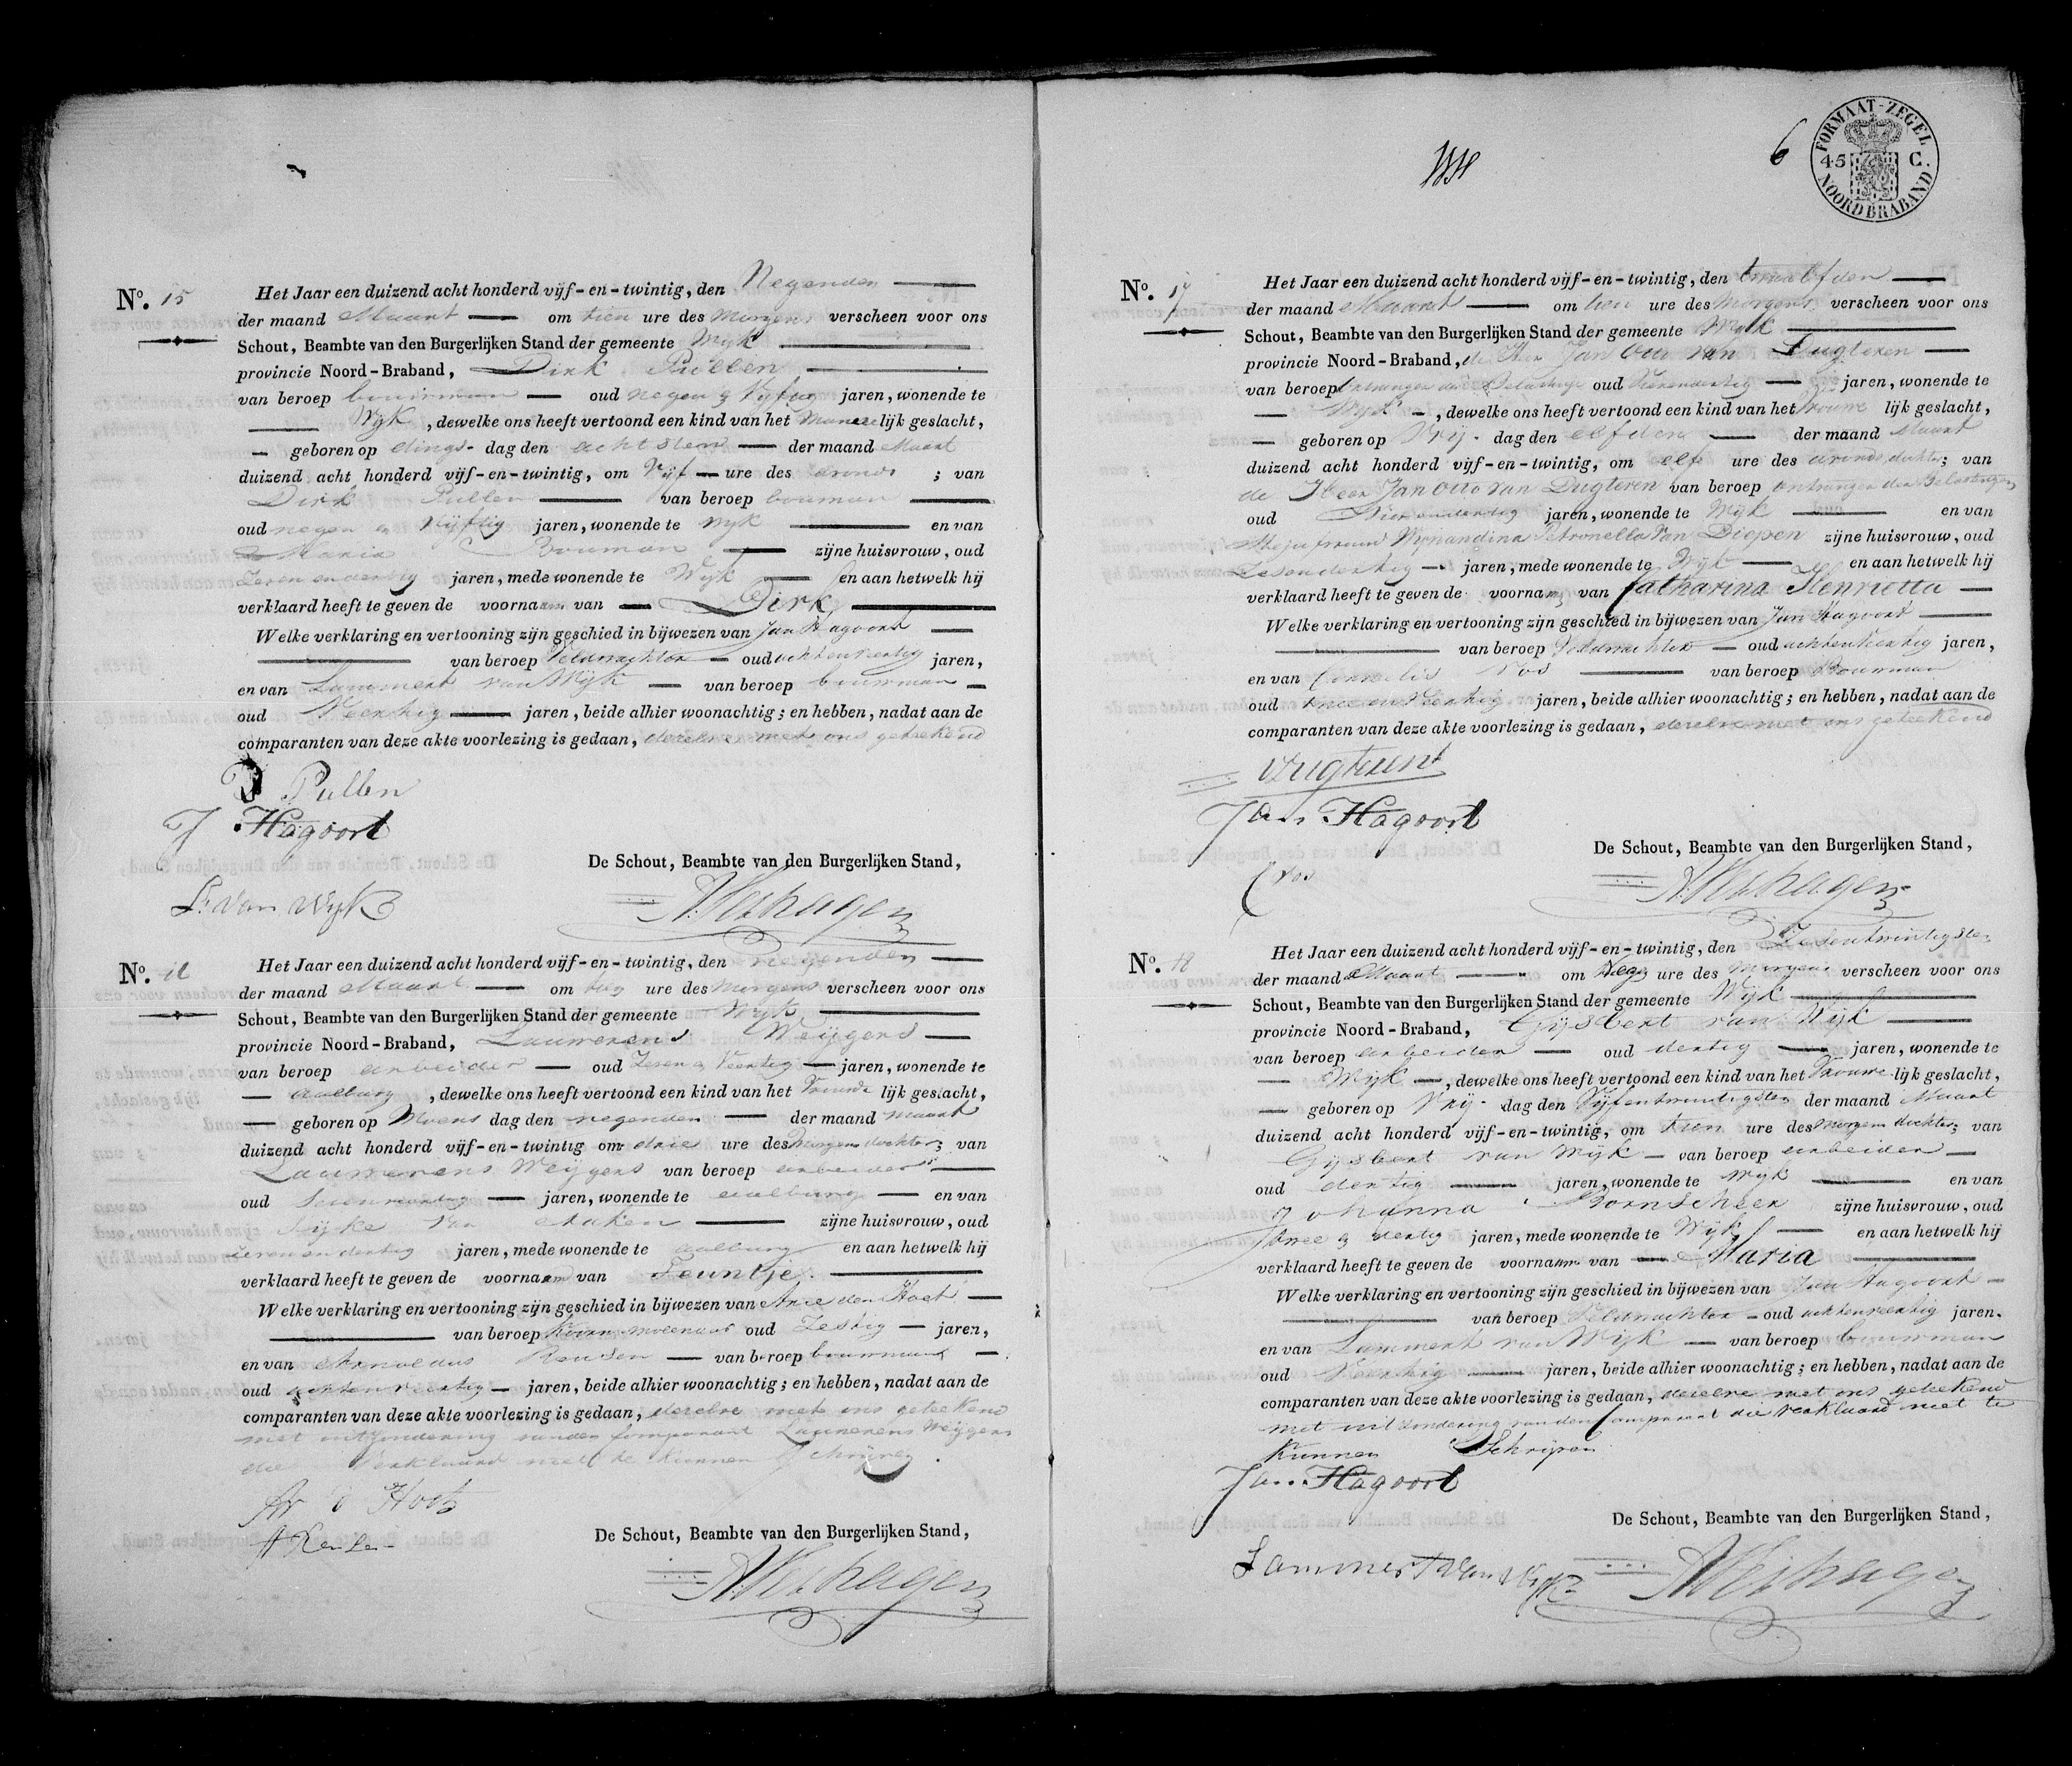 No. 15
Het Jaar een duizend acht honderd vijf-en-twintig, den Negenden
der maand Maart om tien ure des morgens verscheen voor ons
Schout, Beambte van den Burgerlijken Stand der gemeente Wijk
provincie Noord-Braband, Dirk Pullen
van beroep bouwman oud negen & Vyftig jaren, wonende te
Wijk, dewelke ons heeft vertoond een kind van het Mannelijk geslacht,
geboren op dings-dag den achtsten der maand Maart
duizend acht honderd vijf-en-twintig, om Vijf ure des avonds ; van
Dirk Pullen van beroep bouman
oud negen & Vijftig jaren, wonende te Wyk en van
Maria Bouman zijne huisvrouw, oud
Zeven en dertig jaren, mede wonende te Wyk en aan hetwelk hij
verklaard heeft te geven de voornaam van Dirk
Welke verklaring en vertooning zijn geschied in bijwezen van Jan Hagoort
van beroep Veldwachter oud achtenveertig jaren,
en van Lammert van Wijk van beroep bouwman
oud Veertig jaren, beide alhier woonachtig; en hebben, nadat aan de
comparanten van deze akte voorlezing is gedaan, dezelve met ons geteekend
D Pullen
J Hagoort
De Schout, Beambte van den Burgerlijken Stand,
L. van Wyk
No.
Het Jaar een duizend acht honderd vijf-en-twintig, den negenden
der maand Maart om ure des morgens verscheen voor ons
Schout, Beambte van den Burgerlijken Stand der gemeente Wyk
provincie Noord-Braband, Lauwerens Weijgers
van beroep arbeider oud Zeven & Veertig jaren, wonende te
aalburg, dewelke ons heeft vertoond een kind van het lijk geslacht,
geboren op Woens dag den negenden der maand maart
duizend acht honderd vijf-en-twintig om drie ure des morgens dochter; van
Lauwerens Weijgers van beroep arbeider
oud jaren, wonende te aalburg en van
van zijne huisvrouw, oud
Zeven en dertig jaren, mede wonende te aalburg en aan hetwelk hij
verklaard heeft te geven de voornaam van Teuntje
Welke verklaring en vertooning zijn geschied in bijwezen van Arie den Hoet
van beroep Koren molenaar oud Zestig jaren,
en van van beroep bouwman
oud achtenveertig jaren, beide alhier woonachtig; en hebben, nadat aan de
comparanten van deze akte voorlezing is gedaan, dezelve met ons geteekend
met uitzondering van den Comparant Lauwerens Weijgers
die Verklaard niet te Kunnen Schrijven.
De Schout, Beambte van den Burgerlijken Stand,
6
FORMAAT-ZEGEL
45 C.
NOORDBRABAND
No. 17
Het Jaar een duizend acht honderd vijf-en-twintig, den twaalfden
der maand Maart om tien ure des Morgens verscheen voor ons
Schout, Beambte van den Burgerlijken Stand der gemeente Wyk
provincie Noord-Braband, de Heer Jan Otto van Dugteren
van beroep ontvanger der Belastinge oud Vierendertig jaren, wonende te
Wyk, dewelke ons heeft vertoond een kind van het Vrouwelijk geslacht,
geboren op Vrij-dag den elfden der maand Maart
duizend acht honderd vijf-en-twintig, om elf ure des avonds dochter; van
de Heer Jan Otto van Dugteren van beroep ontvanger der Belastingen
oud Vierendertig jaren, wonende te Wyk en van
Mejufvrouw Wynandina Petronella Van Diepen zijne huisvrouw, oud
Zesendertig jaren, mede wonende te Wyk en aan hetwelk hij
verklaard heeft te geven de voornamen van Catharina Henrietta
Welke verklaring en vertooning zijn geschied in bijwezen van Jan Hagoort
van beroep Veldwachter oud achtenveertig jaren,
en van Cornelis Vos van beroep Bouwman
oud tweeenVeertig jaren, beide alhier woonachtig; en hebben, nadat aan de
comparanten van deze akte voorlezing is gedaan, dezelve met ons geteekend
Jan Hagoort
De Schout, Beambte van den Burgerlijken Stand,
C Vos
No. 18
Het Jaar een duizend acht honderd vijf-en-twintig, den Zesentwintigsten
der maand Maart om ure des morgens verscheen voor ons
Schout, Beambte van den Burgerlijken Stand der gemeente Wijk
provincie Noord-Braband, Gijsbert van Wijk
van beroep arbeider oud dertig jaren, wonende te
Wijk, dewelke ons heeft vertoond een kind van het Vrouwelijk geslacht,
geboren op Vrij-dag den Vijfentwintigsten der maand Maart
duizend acht honderd vijf-en-twintig, om tien ure des morgens dochter; van
Gijsbert van Wijk van beroep arbeider
oud dertig jaren, wonende te Wyk en van
Johanna Bornscheer zijne huisvrouw, oud
twee & dertig jaren, mede wonende te Wijk en aan hetwelk hij
verklaard heeft te geven de voornaam van Maria
Welke verklaring en vertooning zijn geschied in bijwezen van Jan Hagoort
van beroep Veldwachter oud achtenveertig jaren.
en van Lammert van Wijk van beroep bouwman
oud Veertig jaren, beide alhier woonachtig; en hebben, nadat aan de
comparanten van deze akte voorlezing is gedaan, dezelve met ons geteekend
met uitzondering van den Comparant die verklaard niet te
Kunnen Schrijven
Jan Hagoort
De Schout, Beambte van den Burgerlijken Stand,
Lammert van Wijk